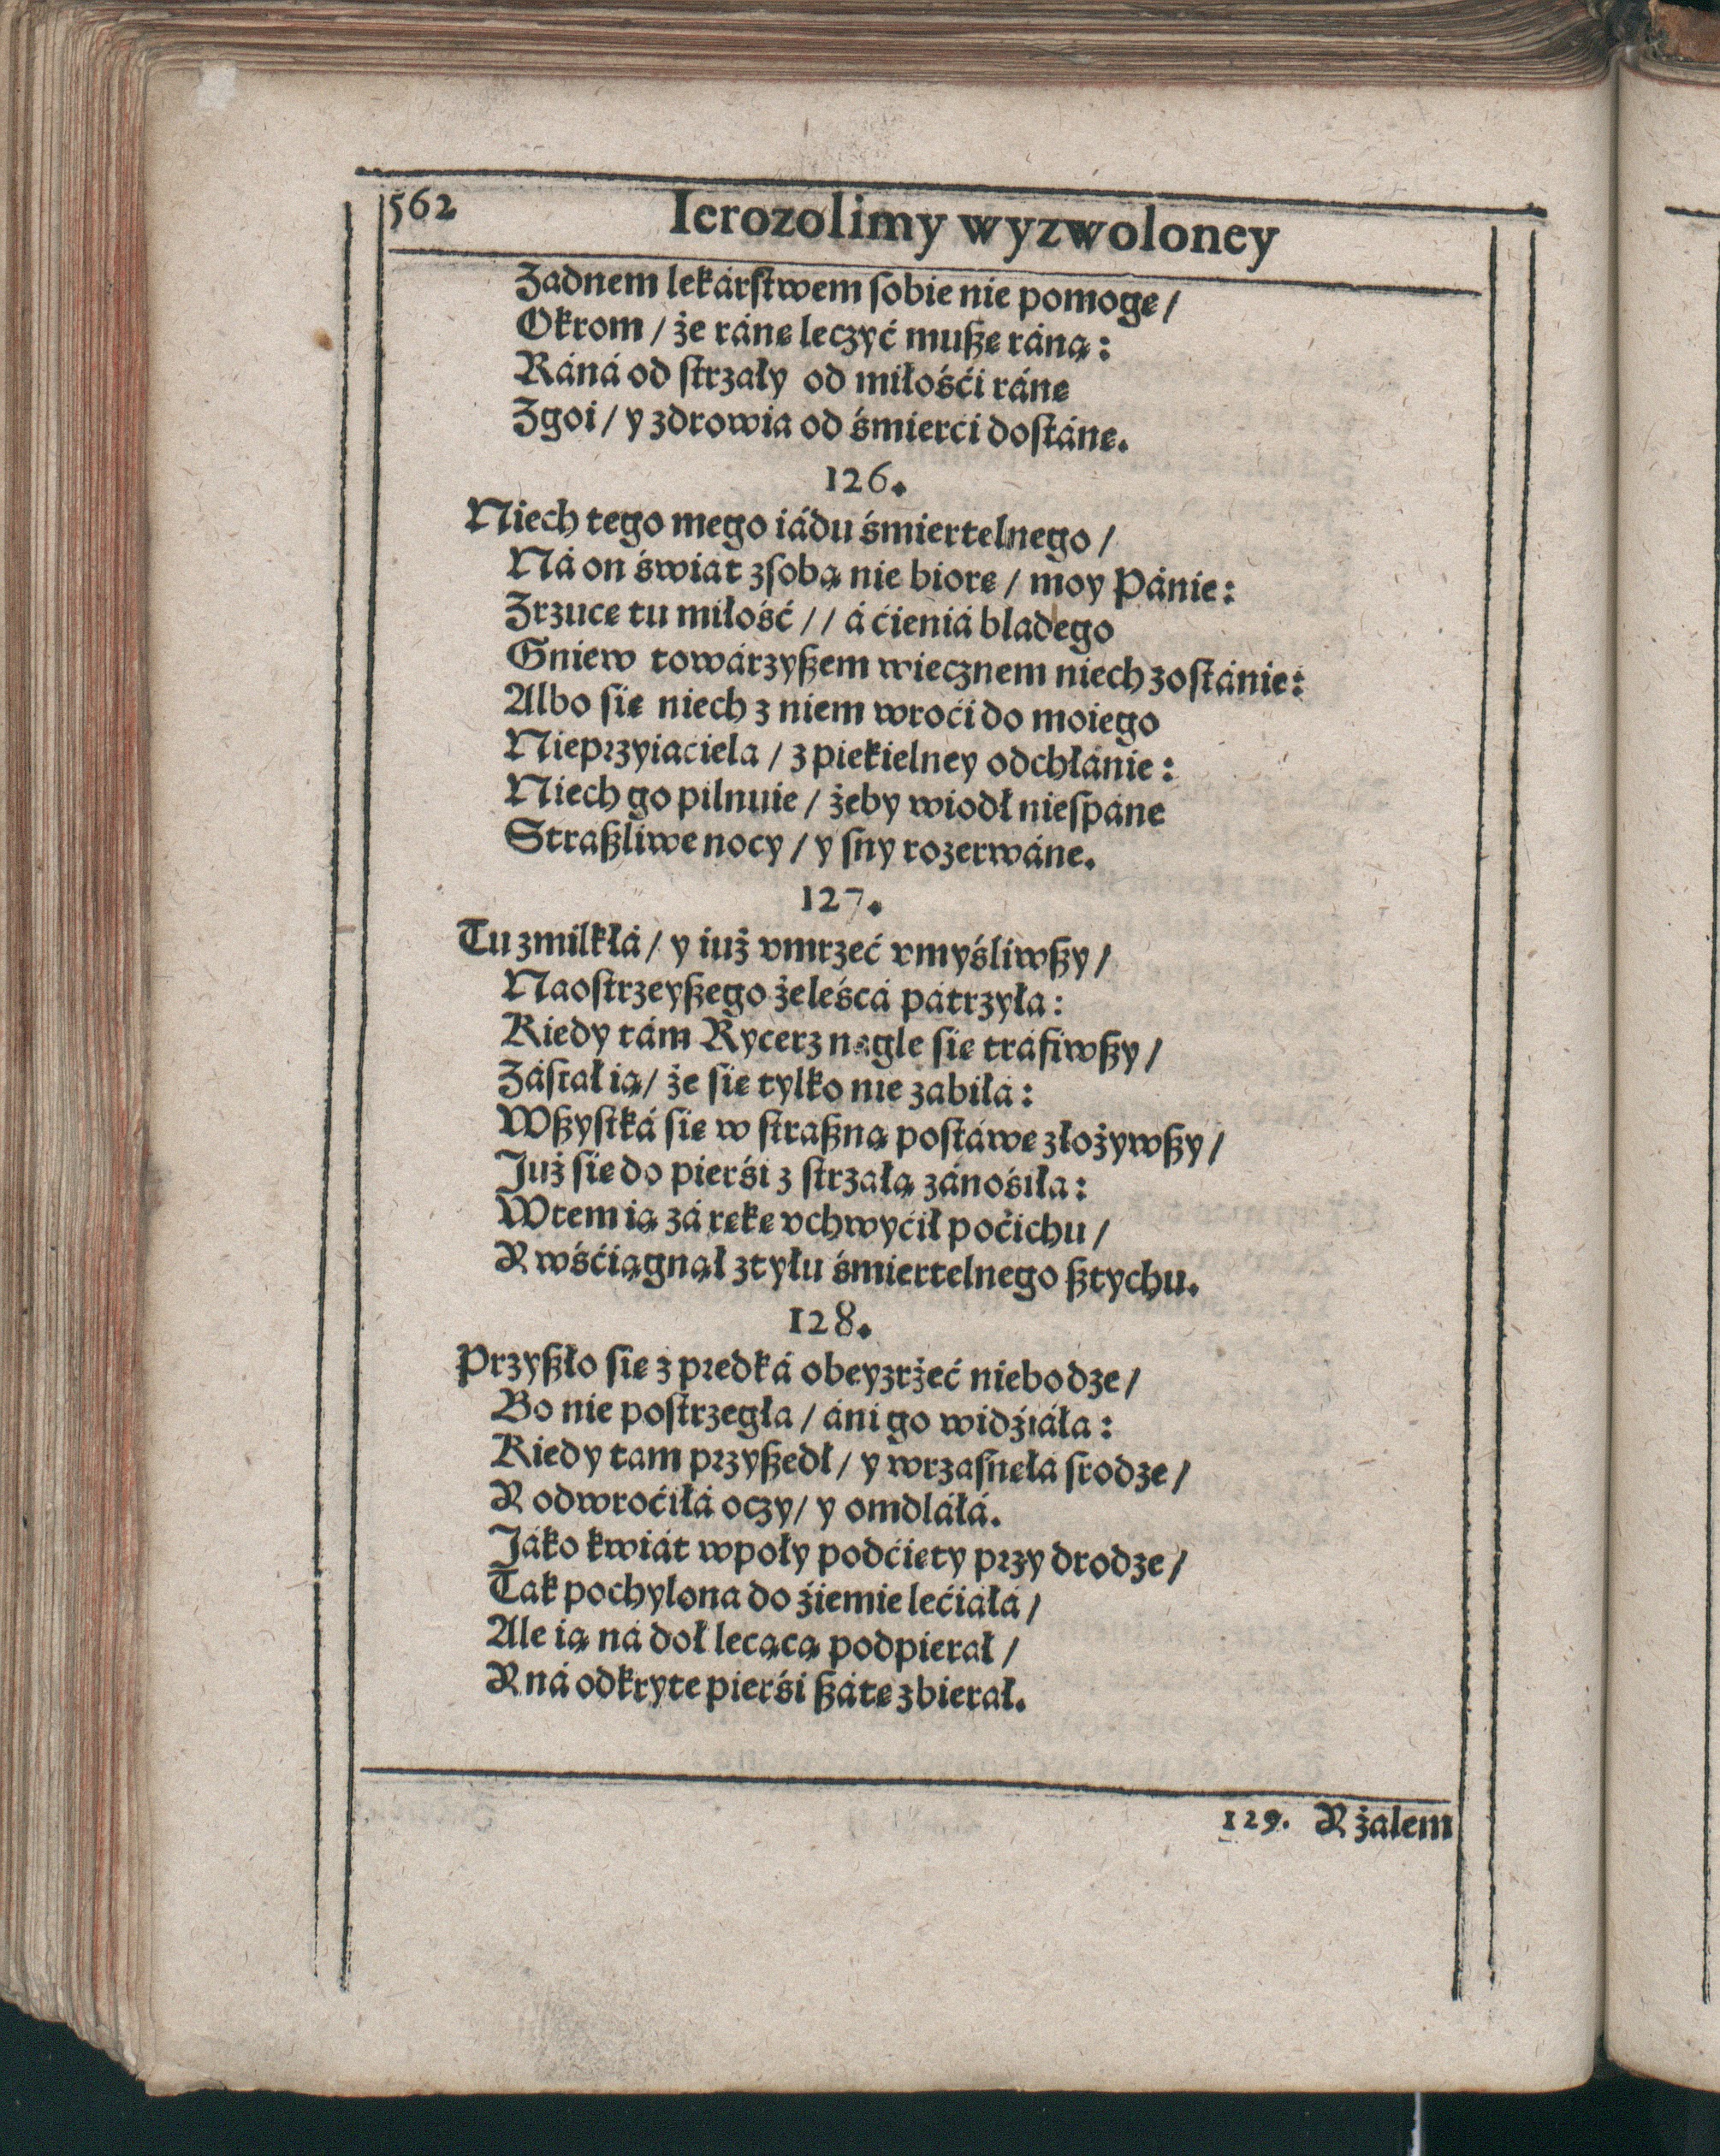 562 Ierozolimy wyzwoloney
Zadnem lekárſtwem ſobie nie pomogę /
Okrom / że ránę leczyć muſzę ráną :
Ráná od ſtrzały od miłośći ránę
Zgoi / y zdrowia od śmierći doſtánę.
126.
Niech tego mego iádu śmiertelnego /
Ná on świát zſobą nie biorę / moy Pánie :
Zrzucę tu miłość / / á ćieniá bladego
Gniew towárzyſzem wiecznem niech zoſtánie :
Albo się niech z niem wroći do moiego
Nieprzyiaciela / z piekielney odchłánie :
Niech go pilnuie / żeby wiodł nieſpáne
Straſzliwe nocy / y ſny rozerwáne.
127.
Tu zmilkłá / y iuż vmrzeć vmyśliwſzy /
Naoſtrzeyſzego żeleścá pátrzyła :
Kiedy tám Rycerz nagle się tráfiwſzy /
Záſtał ią / że się tylko nie zabiłá :
Wſzyſtká się w ſtraſzną poſtáwę złożywſzy /
Już się do pierśi z ſtrzałą zánośiła :
Wtem ią zá rękę vchwyćił poćichu /
Y wśćiągnął ztyłu śmiertelnego ſztychu.
128.
Przyſzło się z prędká obeyzrżeć niebodze /
Bo nie poſtrzegła / áni go widźiáła :
Kiedy tam przyſzedł / y wrzaſnęłá ſrodze /
Y odwroćiłá oczy / y omdláłá.
Jáko kwiát wpoły podćięty przy drodze /
Tak pochylona do źiemie lećiáłá /
Ale ią ná doł lecącą podpierał /
Y ná odkryte pierśi ſzátę zbierał.
129. Y żalem